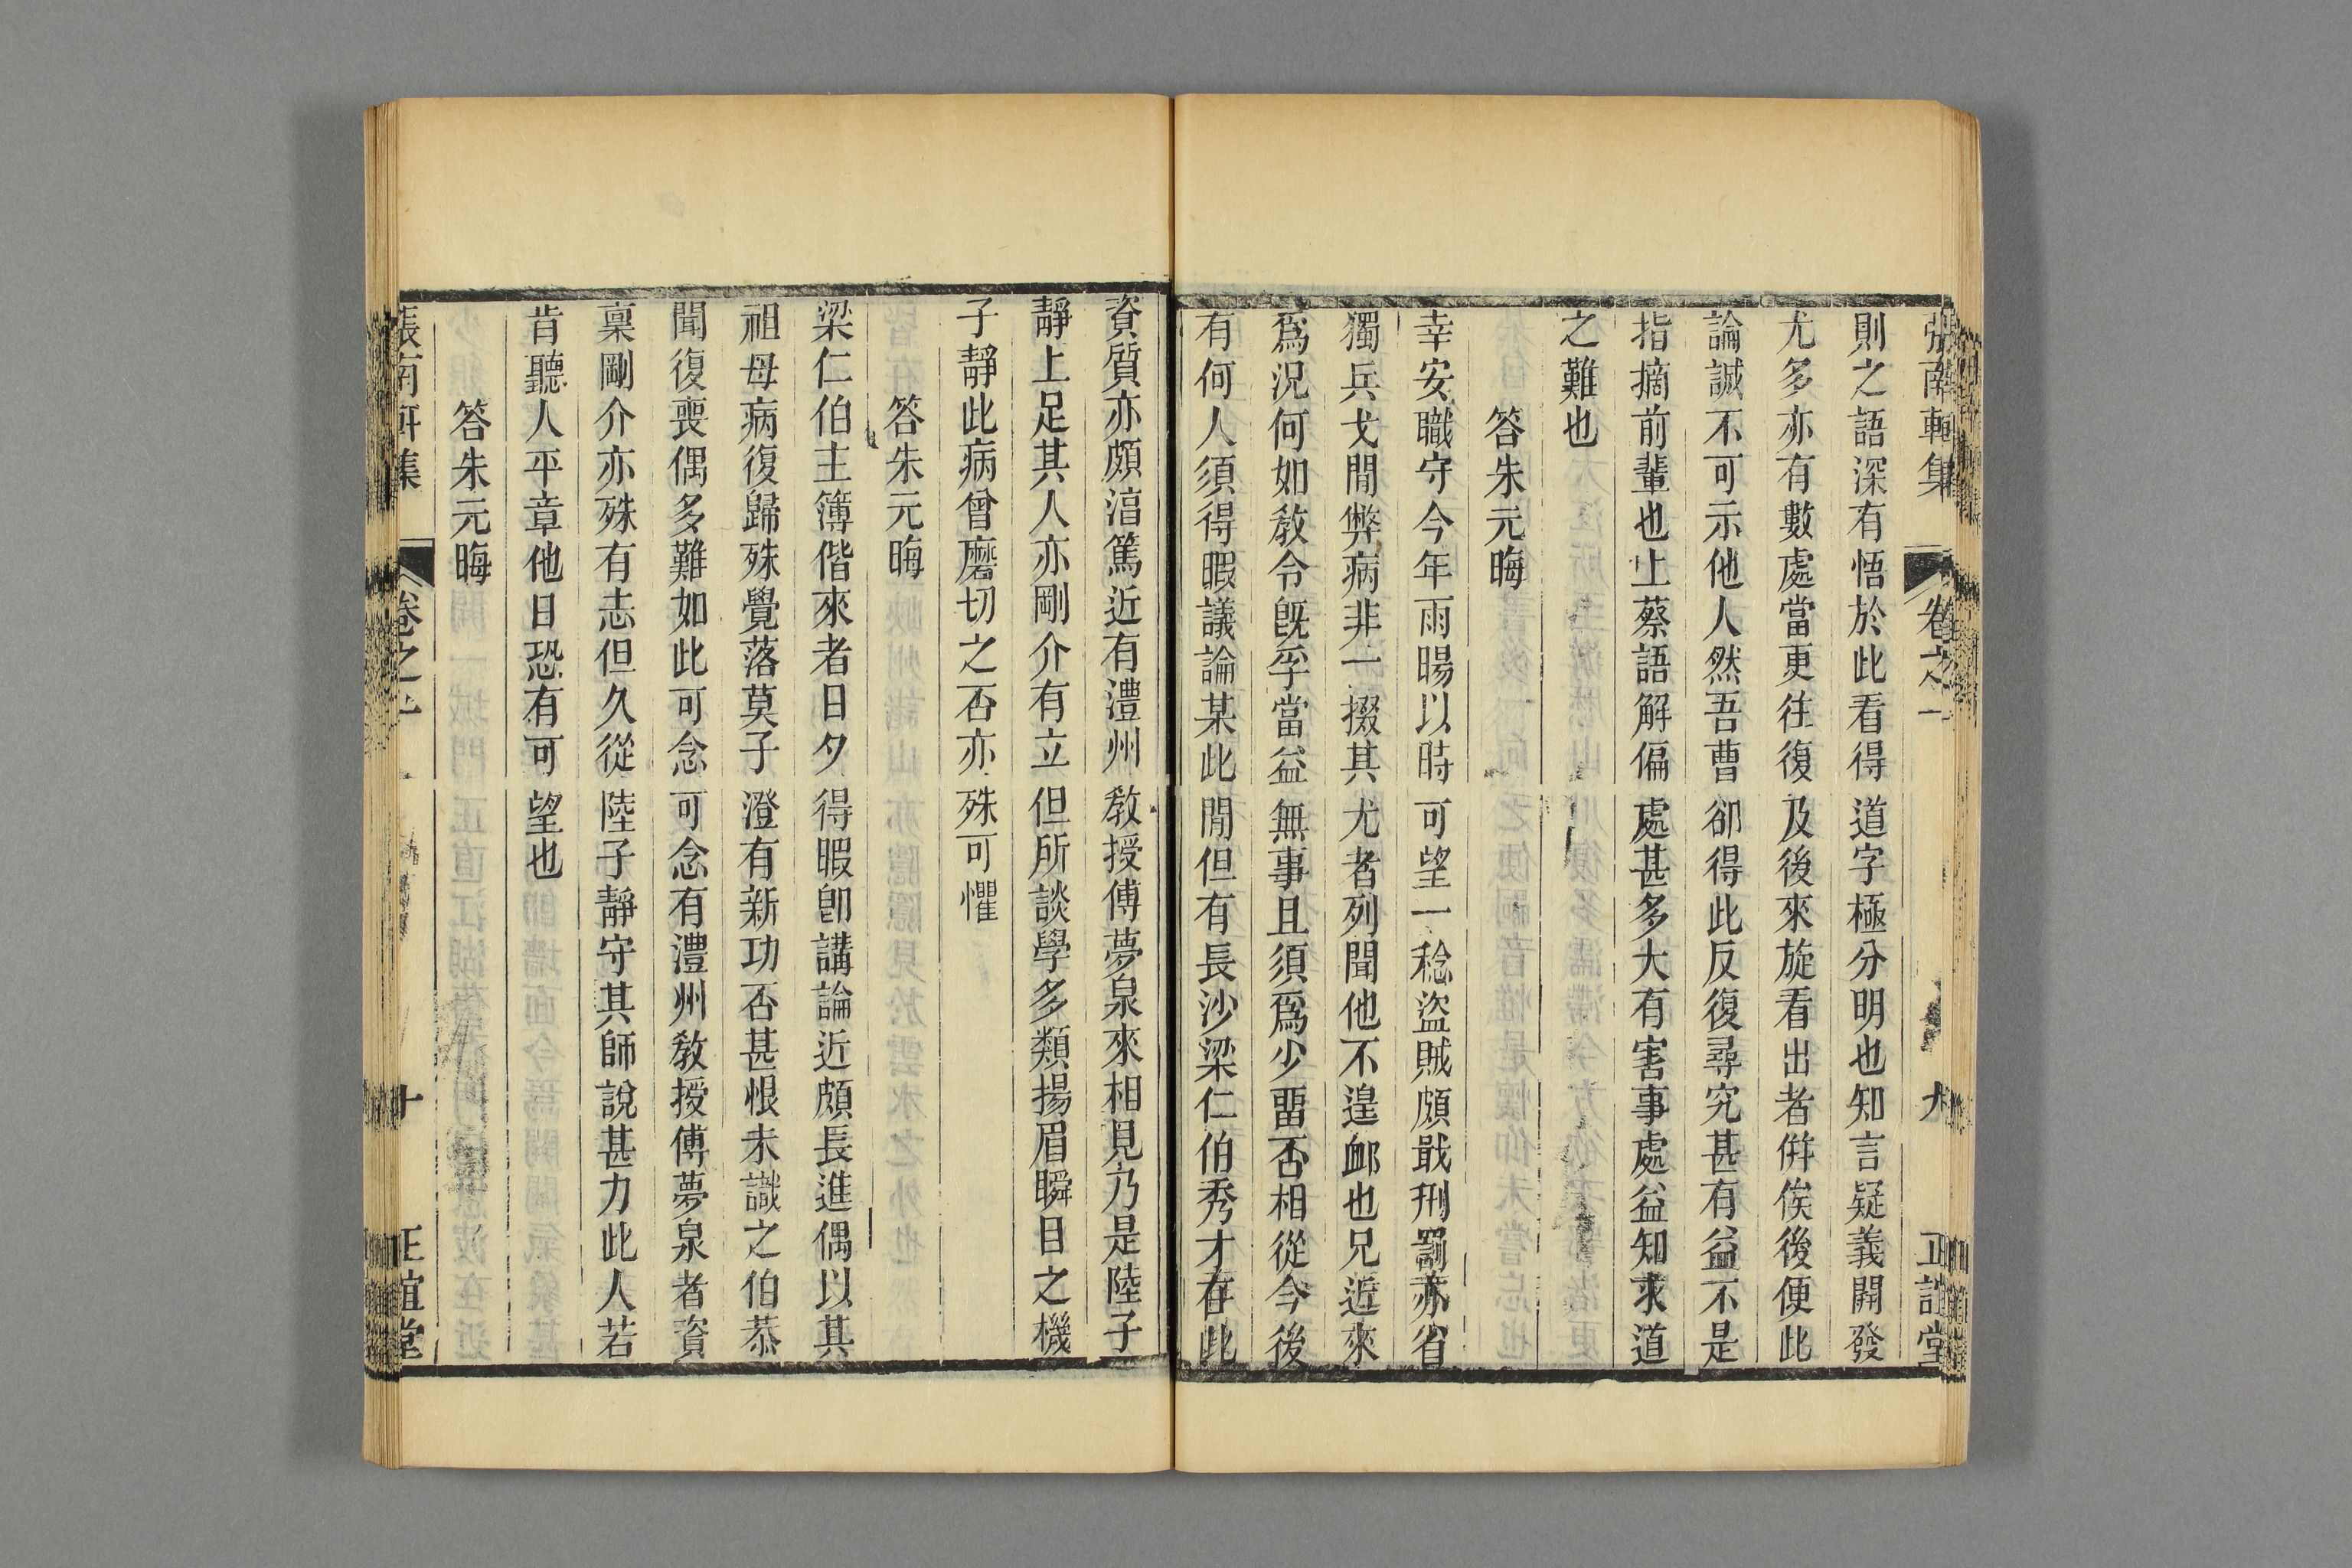 張南軒集 卷之一 九 正誼堂
則之語深有悟於此看得道字極分明也知言疑義開發
尤多亦有數處當更往復及後來旋看出者倂俟後便此
論誠不可示他人然吾曹卻得此反復尋究甚有益不是
指摘前輩也上蔡語解偏處甚多大有害事處益知求道
之難也
答朱元晦
幸安職守今年雨暘以時可望一稔盜賊頗戢刑罰亦省
獨兵戈閒弊病非一掇其尤者列聞他不遑卹也兄近來
爲況何如敎令旣孚當益無事且須爲少畱否相從今後
有何人須得暇議論某此閒但有長沙梁仁伯秀才在此
資質亦頗㴞篤近有澧州敎授傅夢泉來相見乃是陸子
靜上足其人亦剛介有立但所談學多類揚眉瞬目之機
子靜此病曾磨切之否亦殊可懼
答朱元晦
梁仁伯主簿偕來者日夕得暇卽講論近頗長進偶以其
祖母病復歸殊覺落莫子澄有新功否甚恨未識之伯恭
聞復喪偶多難如此可念可念有澧州敎授傅夢泉者資
稟剛介亦殊有志但久從陸子靜守其師說甚力此人若
肯聽人平章他日恐有可望也
答朱元晦
張南軒集 卷之一 十 正誼堂